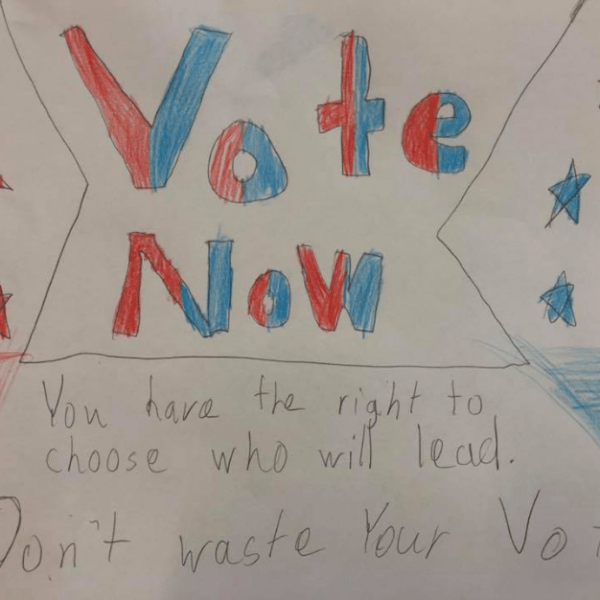 Vote
Now
You have the right to
choose who will lead.
Don't waste Your Vot